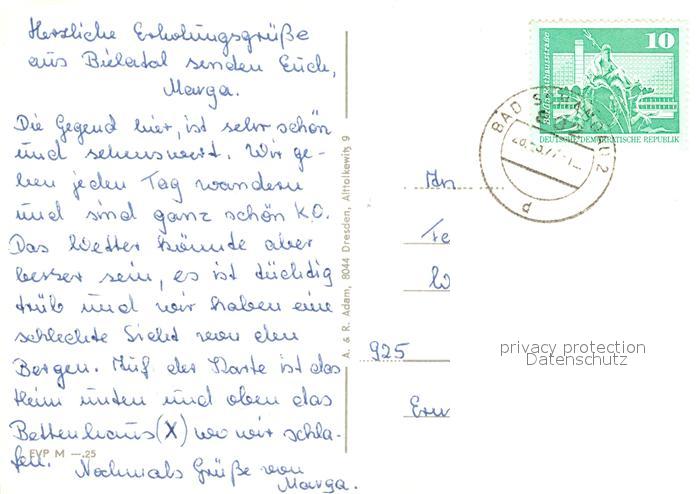 Herzliche Erholungsgrüße
aus Bielatal senden Euch,
Marga.
Die Gegend hier, ist sehr schön
und sehenswert. Wir ge-
hen jeden Tag wandern
und sind ganz schön K.O.
Das Wetter könnte aber
besser sein, es ist tüchtig
trüb und wir haben eine
schlechte Sicht von den
Bergen. Auf der Karte ist das
Heim unten und oben das
Bettenhaus(X) wo wir schla-
fen. Nochmals Grüße von
Marga.
EVP M —.25
A. & R. Adam, 8044 Dresden, Altolkewitz 9
10
DEUTSCHE DEMOKRATISCHE REPUBLIK
BAD SCHANDAU 2
d
925
privacy protection
Datenschutz